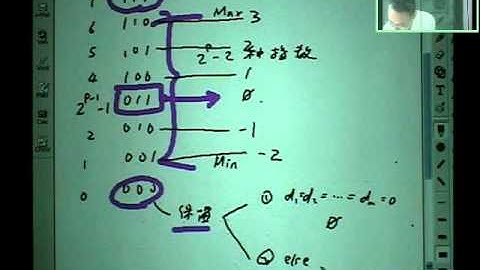 6 110 Max 3
5 101 2^p-2 種指數 2
4 100 1
2^{p-1}-1 011 → 0
2 010 -1
1 001 Min -2
0 000
保留
① d₁=d₂=⋯=dₘ=0
0
② else